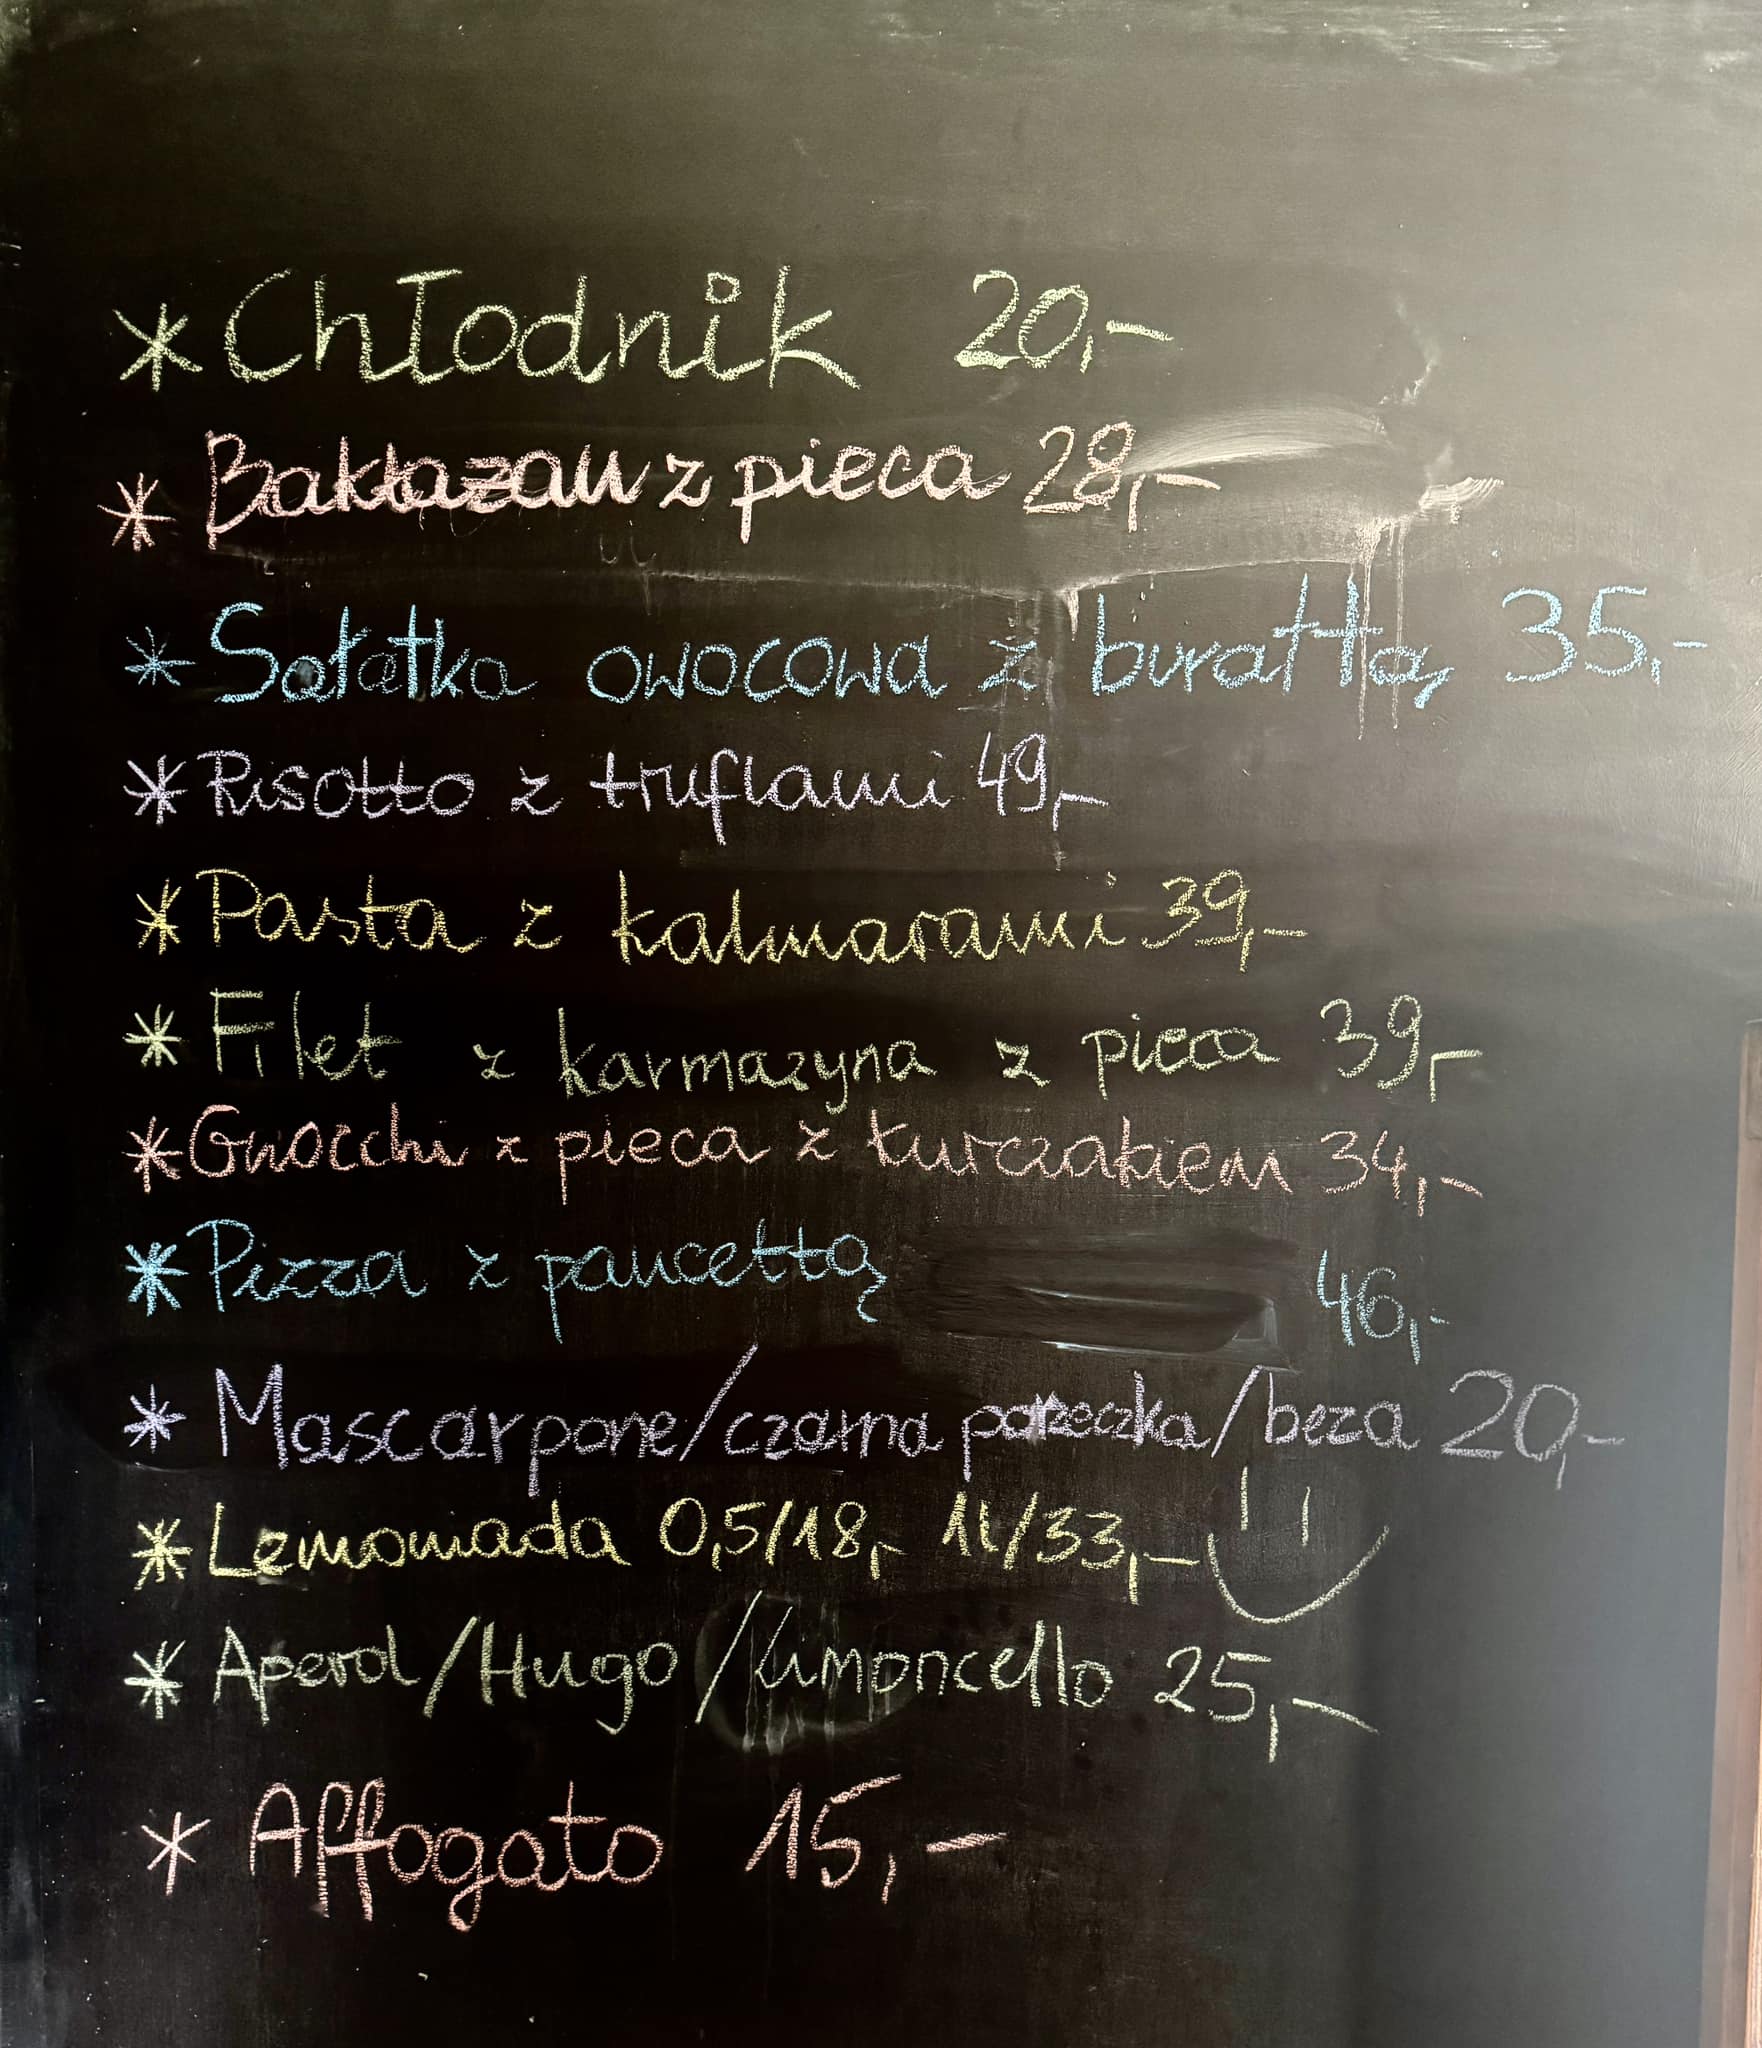 * Chłodnik 20,-
* Bakłażan z pieca 28,-
* Sałatka owocowa z burattą 35,-
* Risotto z truflami 49,-
* Pasta z kalmarami 39,-
* Filet z karmazyna z pieca 39,-
* Gnocchi z pieca z kurczakiem 34,-
* Pizza z pancettą 46,-
* Mascarpone/czarna porzeczka/beza 20,-
* Lemoniada 0,5/18,- 1l/33,-
* Aperol/Hugo/Limoncello 25,-
* Affogato 15,-